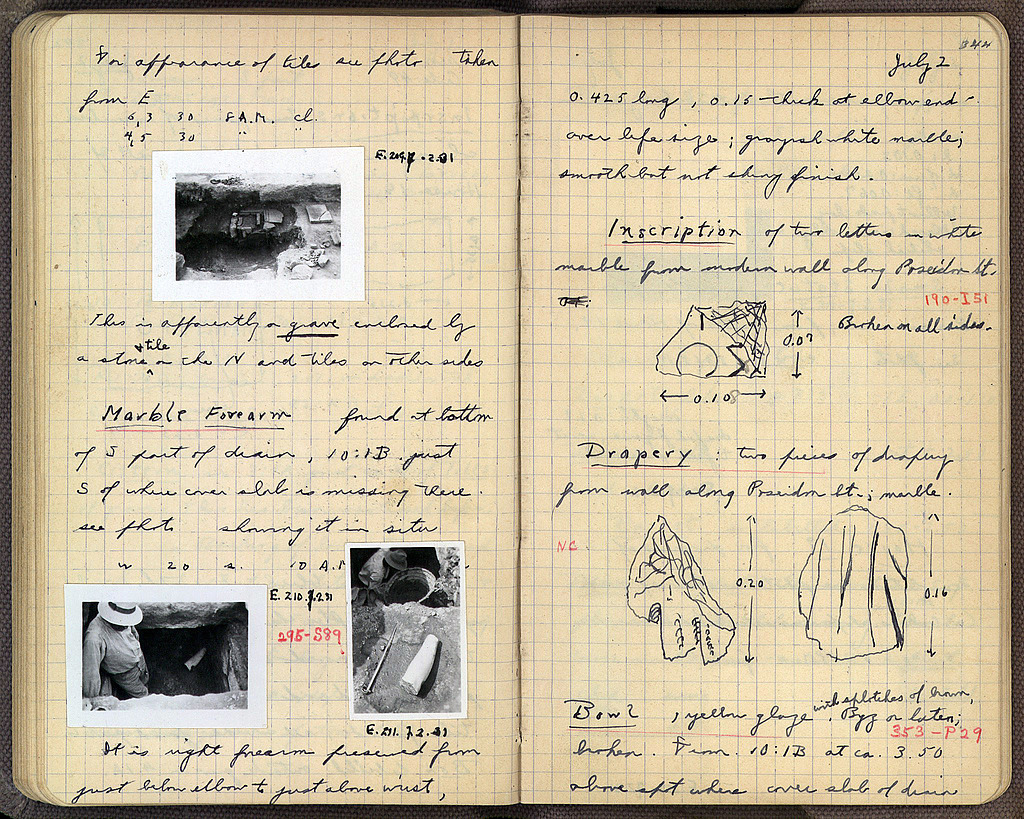 For appearance of tiles see photo taken
from E
6,3 30 8 A.M. cl.
4,5 30 " "
E. 209.7.2.31
This is apparently a grave enclosed by
a stone + tile on the N and tiles on other sides
Marble Forearm found at bottom
of S part of drain, 10:1B. just
S of where cover slab is missing there.
see photo showing it in situ
20 s. 10 A.M.
E. 210.7.2.31
295-S89
E. 211.7.2.31
It is right forearm preserved from
just below elbow to just above wrist,
July 2
0.425 long, 0.15 thick at elbow end -
over life size; grayish white marble;
smooth but not shiny finish.
Inscription of two letters in white
marble from modern wall along Poseidon St.
190-I51
Broken on all sides.
0.07
0.108
Drapery: two pieces of drapery
from wall along Poseidon St.; marble.
NC.
0.20
0.16
with splotches of brown,
Bowl, yellow glaze. Byz or later;
353-P29
broken. From 10:1B at ca. 3.50
above spt where cover slab of drain